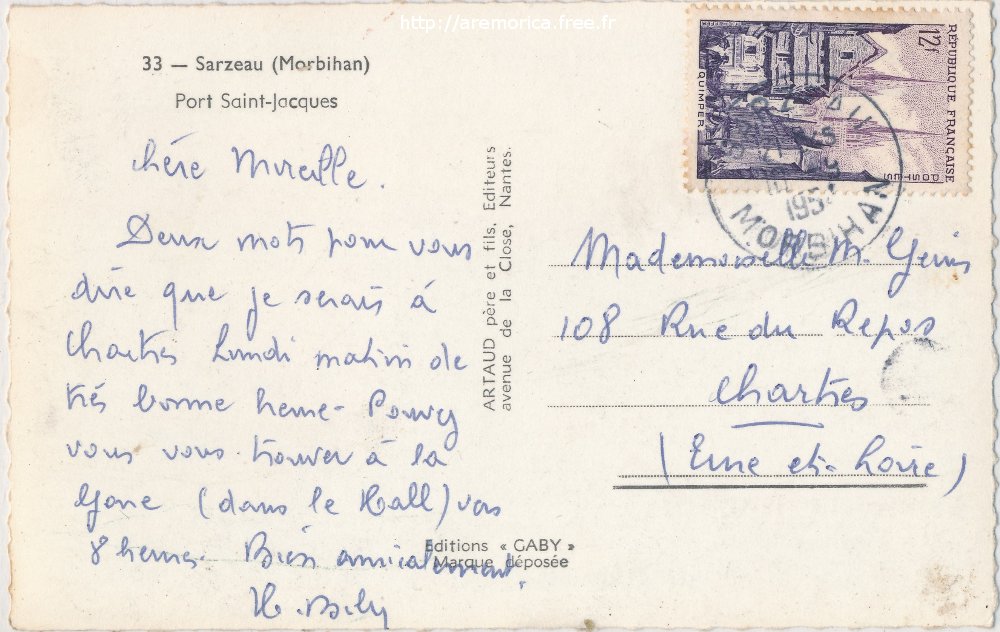 http://aremorica.free.fr
33 — Sarzeau (Morbihan)
Port Saint-Jacques
Chère Mireille.
Deux mots pour vous
dire que je serais à
Chartres Lundi matin de
très bonne heure - Pouvez
vous vous trouver à la
Gare (dans le Hall) vers
8 heures - Bien amicalement
ARTAUD père et fils, Editeurs
avenue de la Close, Nantes.
Editions « GABY »
Marque déposée
RÉPUBLIQUE FRANÇAISE
POSTES
12f
QUIMPER
MORBIHAN
Mademoiselle M.
108 Rue du Repos
Chartres
(Eure et-Loire)